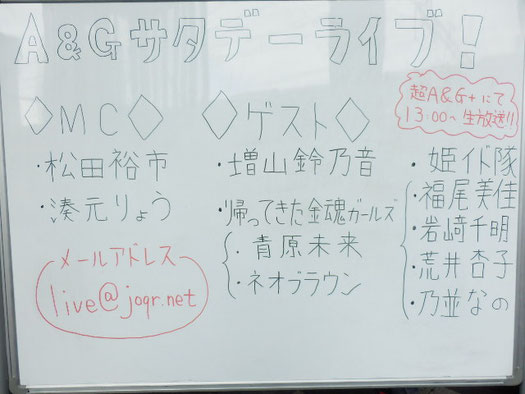 A&Gサタデーライブ!
超A&G+にて
13:00~生放送!!
◇MC◇
・松田裕市
・湊元りょう
メールアドレス
live@joqr.net
◇ゲスト◇
・増山鈴乃音
・帰ってきた金魂ガールズ
・青原未来
・ネオブラウン
・姫イド隊
・福尾美佳
・岩﨑千明
・荒井杏子
・乃並なの